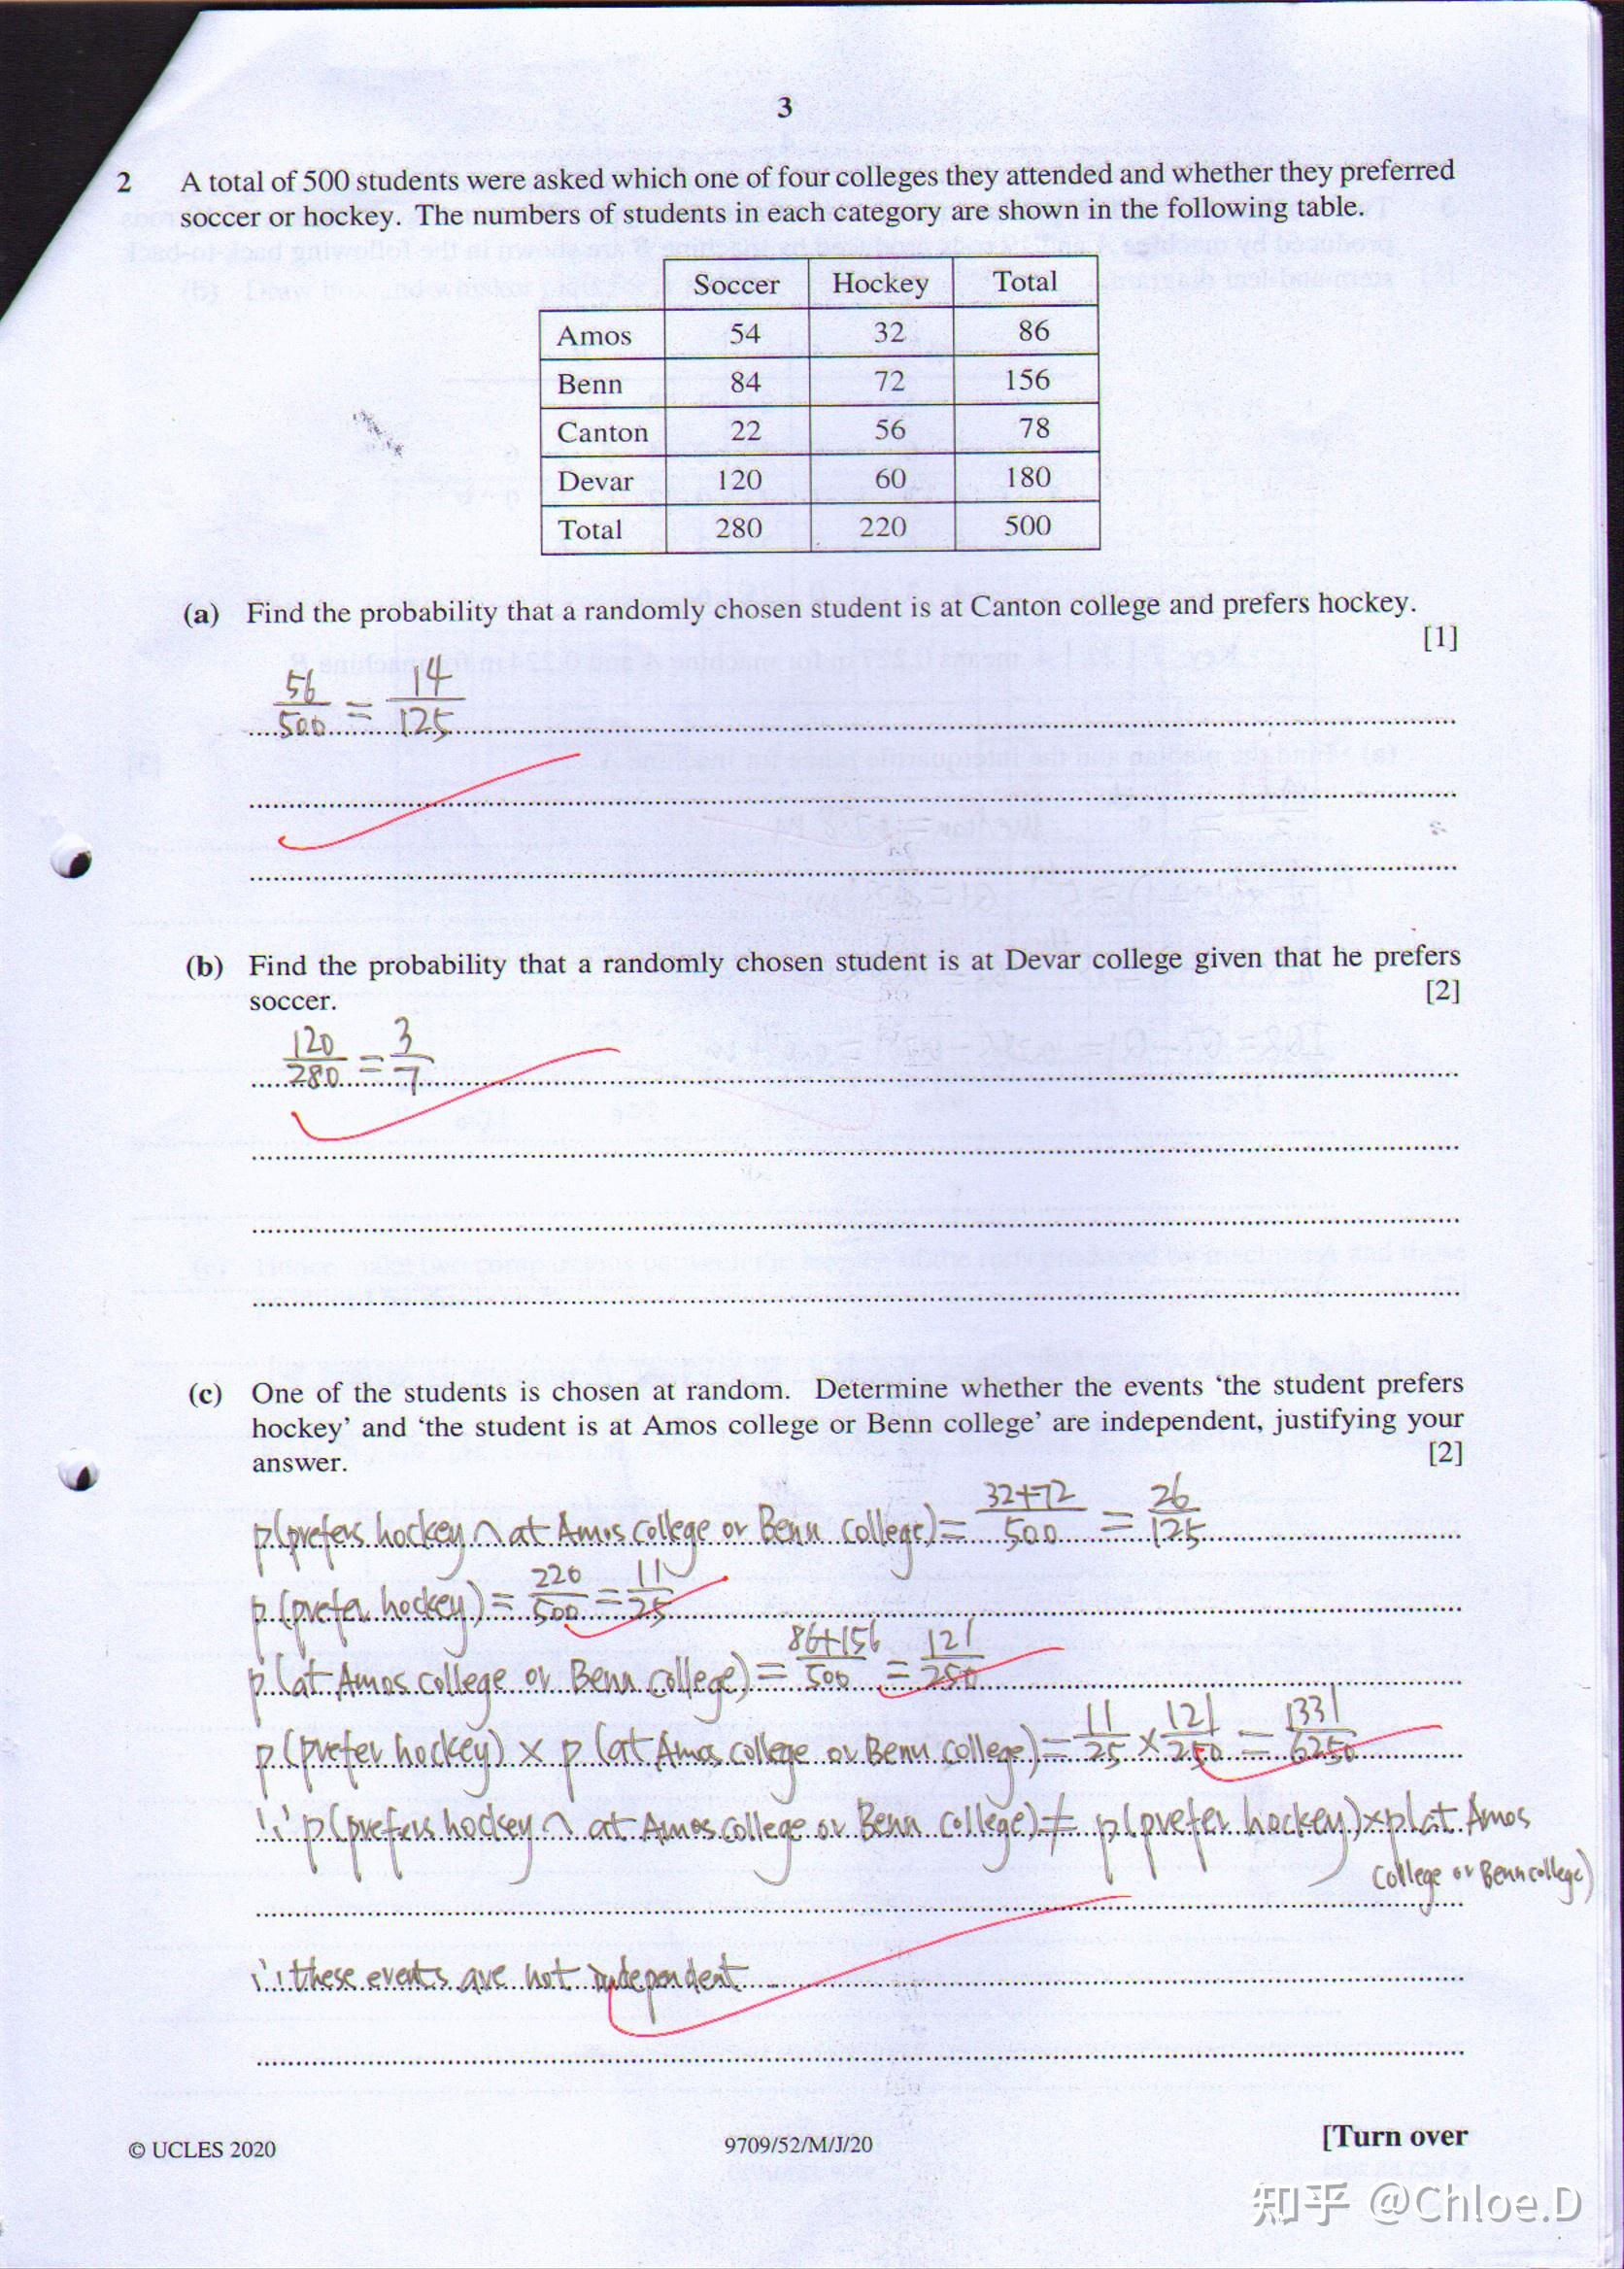 3
2 A total of 500 students were asked which one of four colleges they attended and whether they preferred
soccer or hockey. The numbers of students in each category are shown in the following table.
Soccer Hockey Total
Amos 54 32 86
Benn 84 72 156
Canton 22 56 78
Devar 120 60 180
Total 280 220 500
(a) Find the probability that a randomly chosen student is at Canton college and prefers hockey.
[1]
56/500 = 14/125
(b) Find the probability that a randomly chosen student is at Devar college given that he prefers
soccer. [2]
120/280 = 3/7
(c) One of the students is chosen at random. Determine whether the events ‘the student prefers
hockey’ and ‘the student is at Amos college or Benn college’ are independent, justifying your
answer. [2]
p(prefers hockey ∩ at Amos college or Benn college) = 32+72/500 = 26/125
p(prefer hockey) = 220/500 = 11/25
p(at Amos college or Benn college) = 86+156/500 = 121/250
p(prefer hockey) × p(at Amos college or Benn college) = 11/25 × 121/250 = 1331/6250
∵ p(prefers hockey ∩ at Amos college or Benn college) ≠ p(prefer hockey) × p(at Amos
college or Benn college)
∴ these events are not independent
© UCLES 2020 9709/52/M/J/20 [Turn over
知乎 @Chloe.D